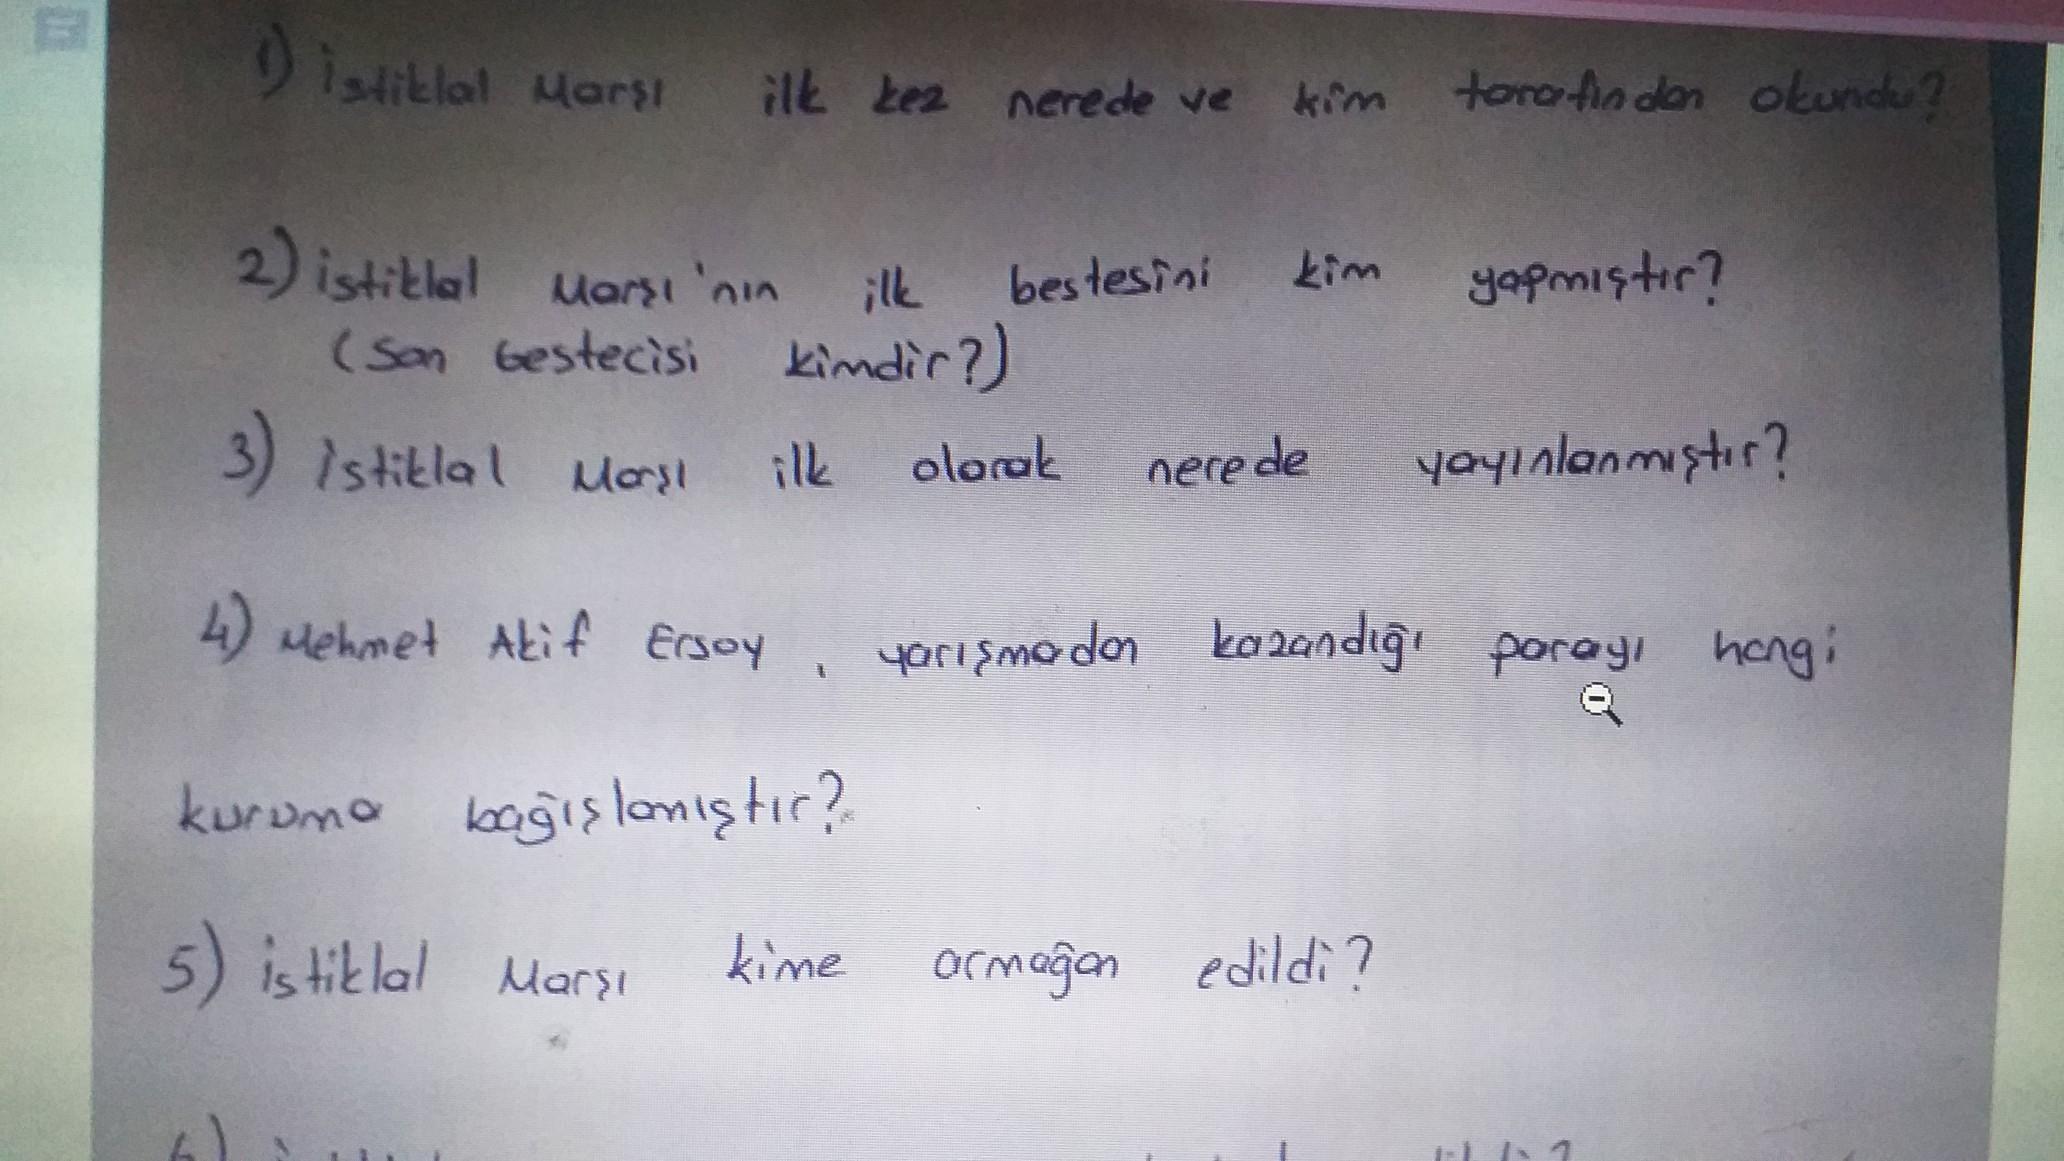 1) İstiklal Marşı ilk kez nerede ve kim tarafından okundu?
2) istiklal Marşı'nın ilk bestesini kim yapmıştır?
(Son bestecisi kimdir?)
3) İstiklal Marşı ilk olarak nerede yayınlanmıştır?
4) Mehmet Akif Ersoy, yarışmadan kazandığı parayı hangi
kuruma bağışlamıştır?
5) istiklal Marşı kime armağan edildi?
6)